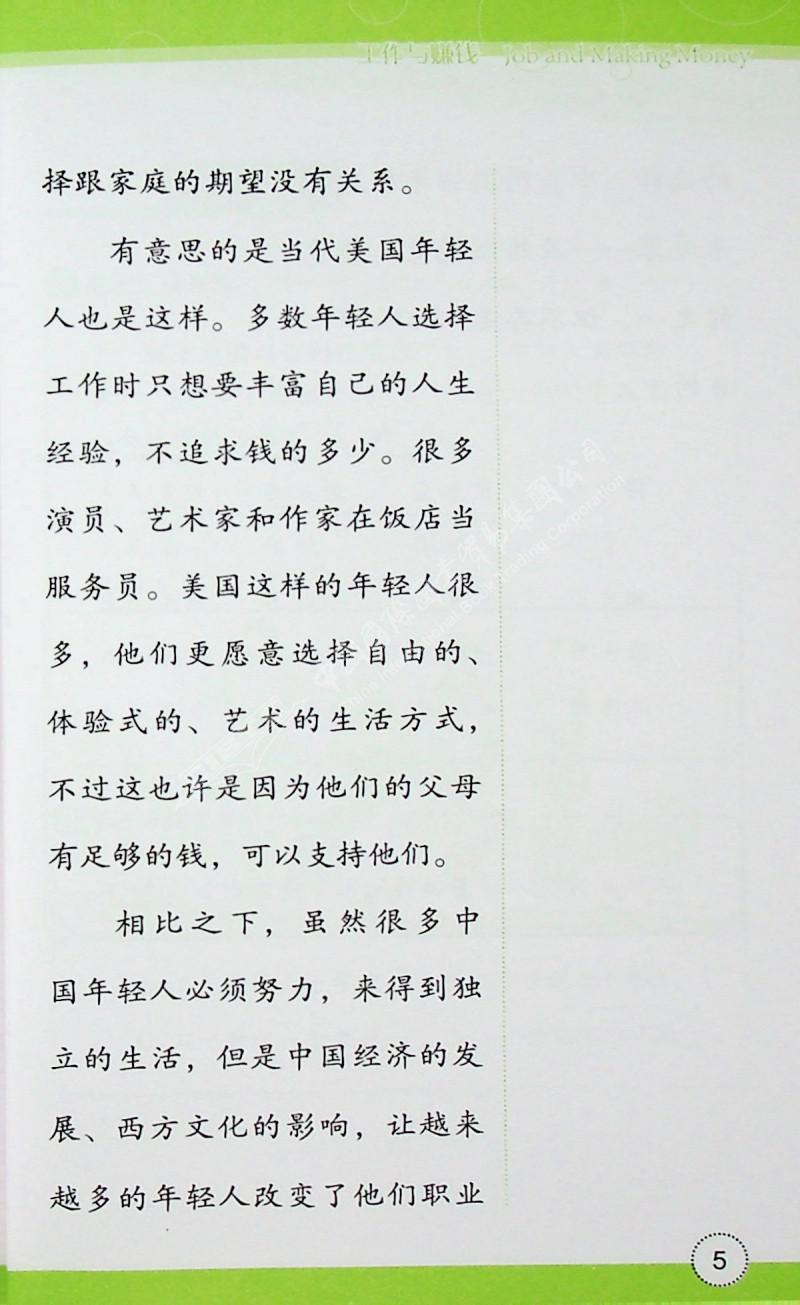 工作与赚钱 Job and Making Money
择跟家庭的期望没有关系。
有意思的是当代美国年轻
人也是这样。多数年轻人选择
工作时只想要丰富自己的人生
经验，不追求钱的多少。很多
演员、艺术家和作家在饭店当
服务员。美国这样的年轻人很
多，他们更愿意选择自由的、
体验式的、艺术的生活方式，
不过这也许是因为他们的父母
有足够的钱，可以支持他们。
相比之下，虽然很多中
国年轻人必须努力，来得到独
立的生活，但是中国经济的发
展、西方文化的影响，让越来
越多的年轻人改变了他们职业
5